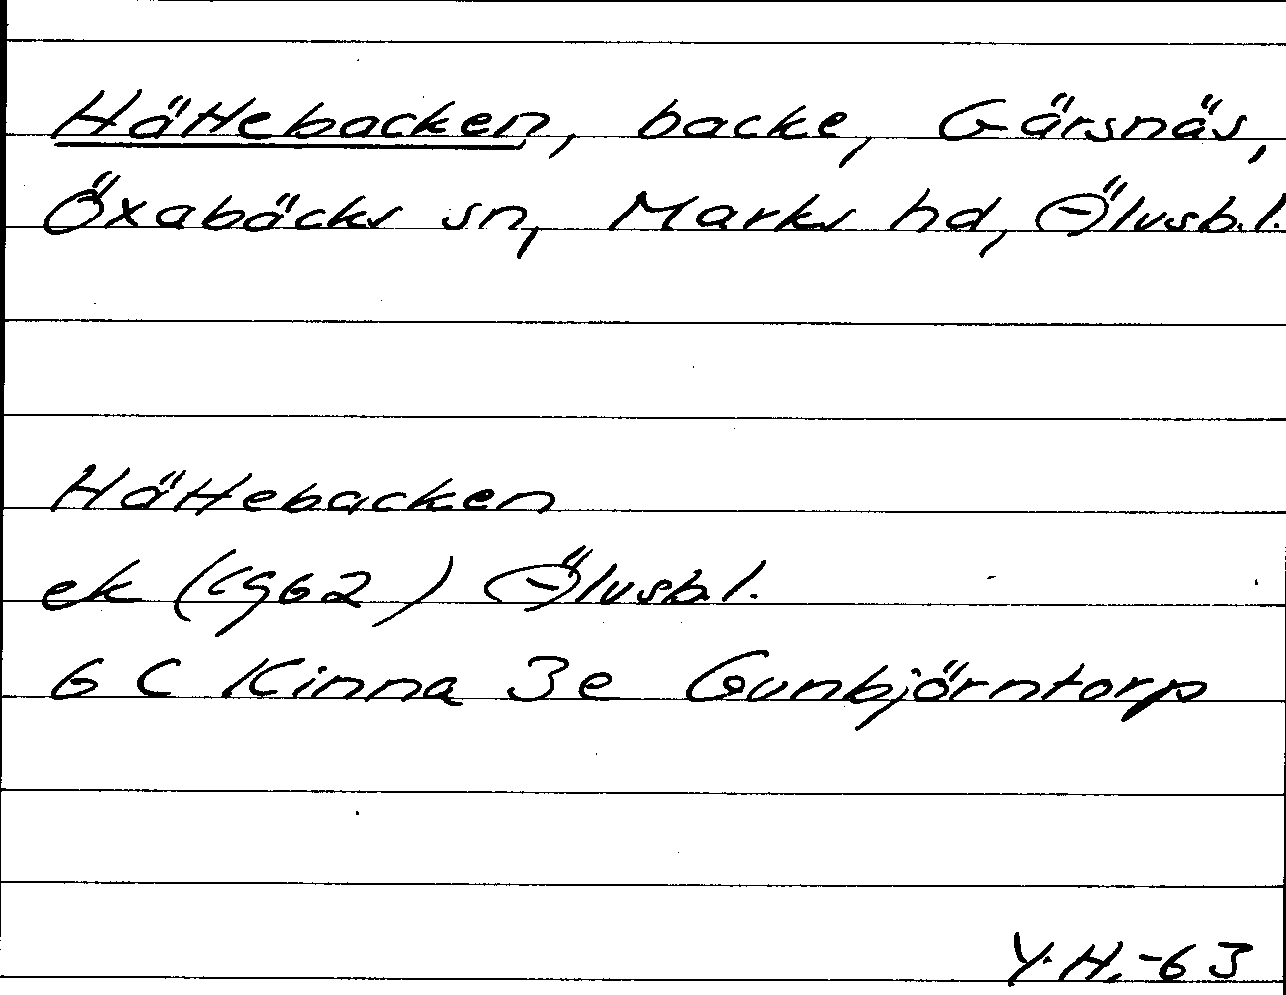 Hättebacken, backe, Gärsnäs,
Öxabäcks sn, Marks hd, Älvsb.l.
Hättebacken
ek (1962) Älvsb.l.
6 C Kinna 3e Gunbjörntorp
Y.H.-63